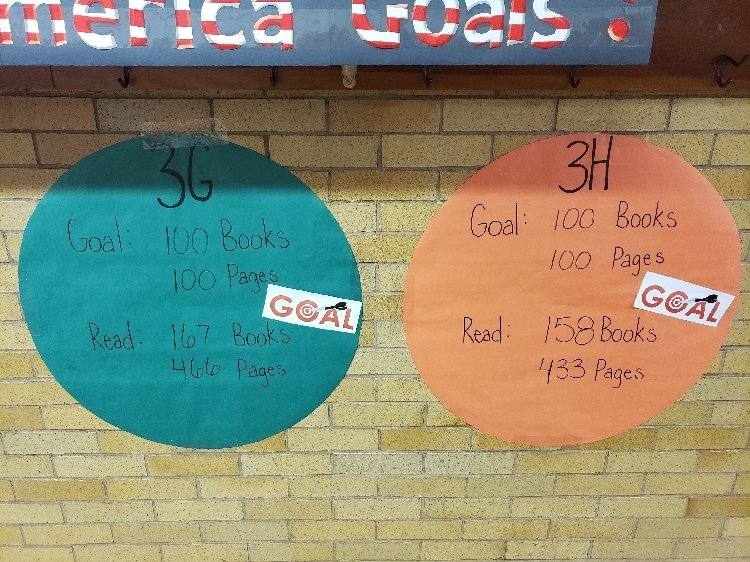 merica Goals!
3G
Goal: 100 Books
100 Pages
GOAL
Read: 167 Books
466 Pages
3H
Goal: 100 Books
100 Pages
GOAL
Read: 158 Books
433 Pages